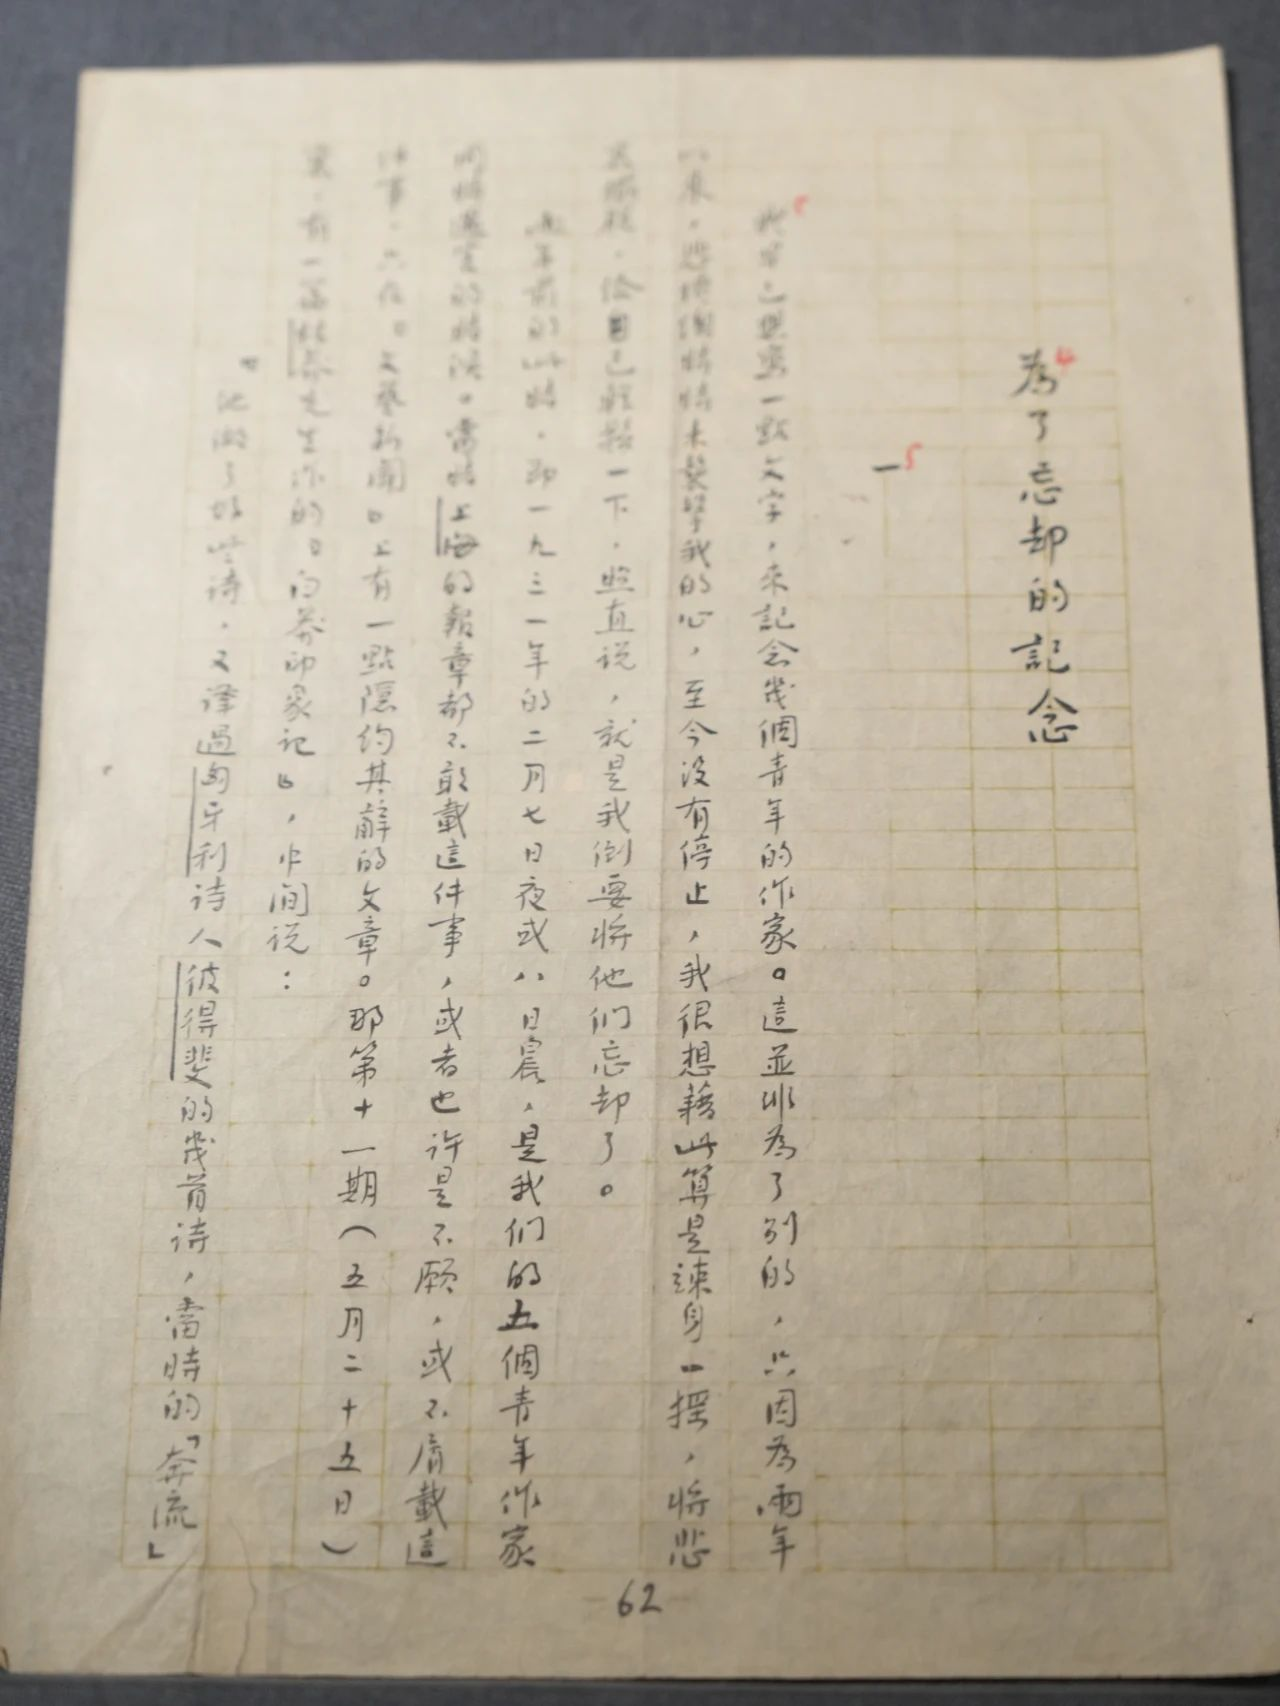 為了忘却的記念
一
我早已想寫一點文字，來記念幾個青年的作家。這並非為了别的，只因為兩年
以來，悲憤總時時來襲擊我的心，至今没有停止，我很想藉此算是竦身一摇，将悲
哀擺脱，給自己輕鬆一下，照直说，就是我倒要将他们忘却了。
兩年前的此時，即一九三一年的二月七日夜或八日晨，是我们的五個青年作家
同時遇害的時候。當時上海的報章都不敢載這件事，或者也许是不願，或不屑載這
件事，只在『文藝新聞』上有一點隱约其辭的文章。那第十一期（五月二十五日）
裏，有一篇林莽先生作的『白莽印象记』，中间说：
『他做了好些诗，又譯過匈牙利诗人彼得斐的幾首诗，當時的「奔流」
62